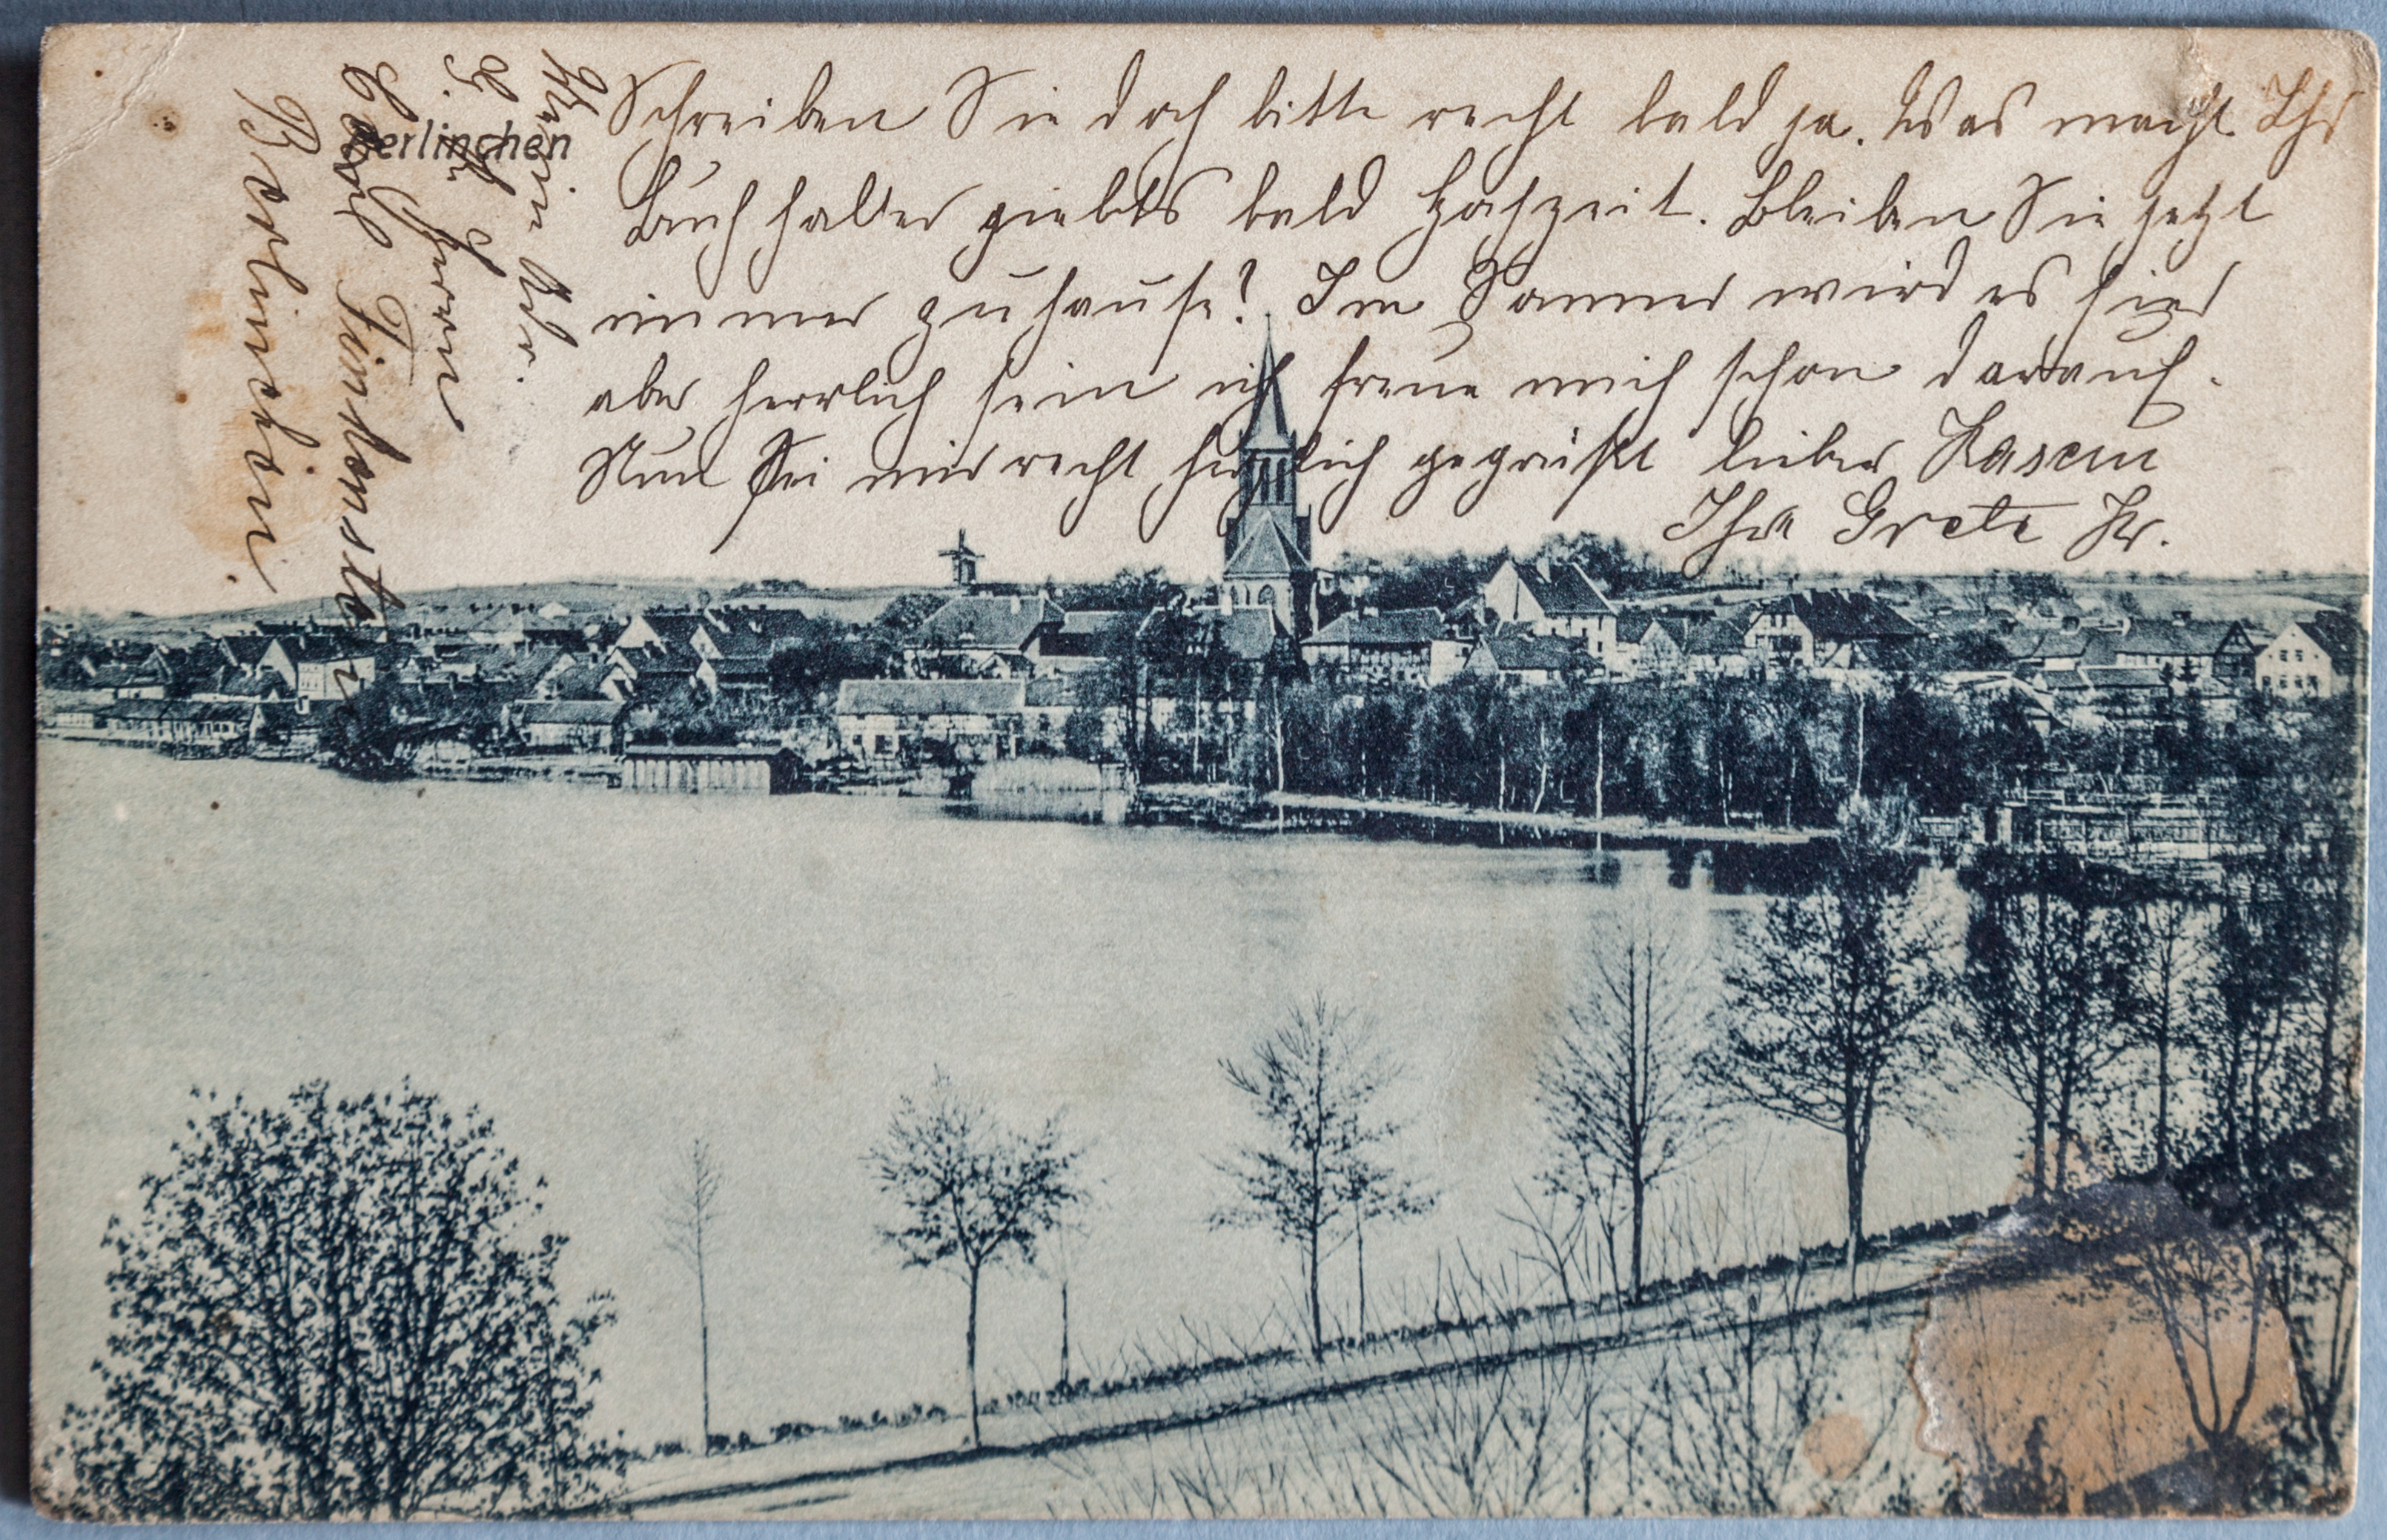 Berlinchen
Schreiben Sie doch bitte recht bald ja. Was macht Ihr
Buchhalter giebts bald Hochzeit. Bleiben Sie jetzt
immer zuhause? Im Sommer wird es hier
aber herrlich sein ich freue mich schon darauf.
Nun Sei mir recht herzlich gegrüßt lieber
Ihre Grete Kr.
Meine Adr.
b. Herrn
Carl
Berlinchen.